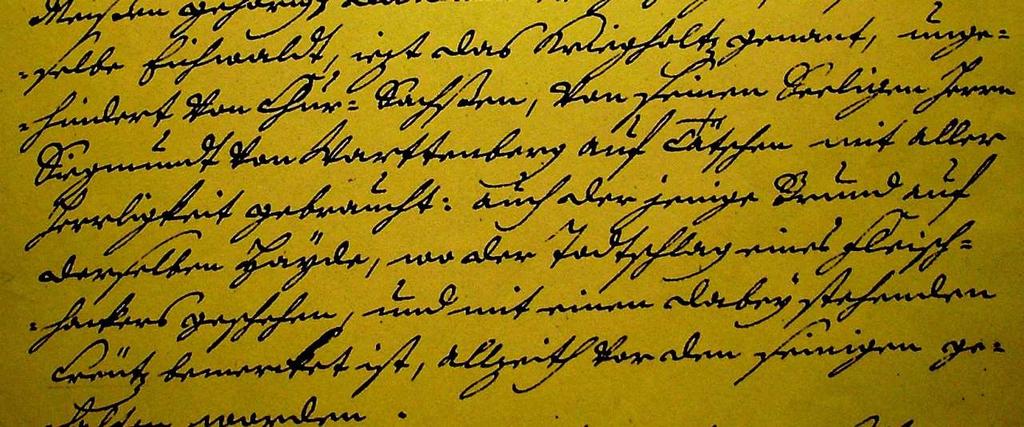 Meisten gehörig
-selbe Eichwaldt, iezt das Krieghollz genant, unge=
=hindert von Chur=Sachßen, von seinen Seeligen Herrn
Siegmundt von Warttenberg auf Tätschen mit aller
Herrligkeit gebraucht: auch der jenige Grund auf
derselben Hayde, wo der Todtschlag eines Fleisch=
=hackers geschehen, und mit einen dabeÿ stehenden
Creütz bemercket ist, allzeith vor den seinigen ge=
halten worden.